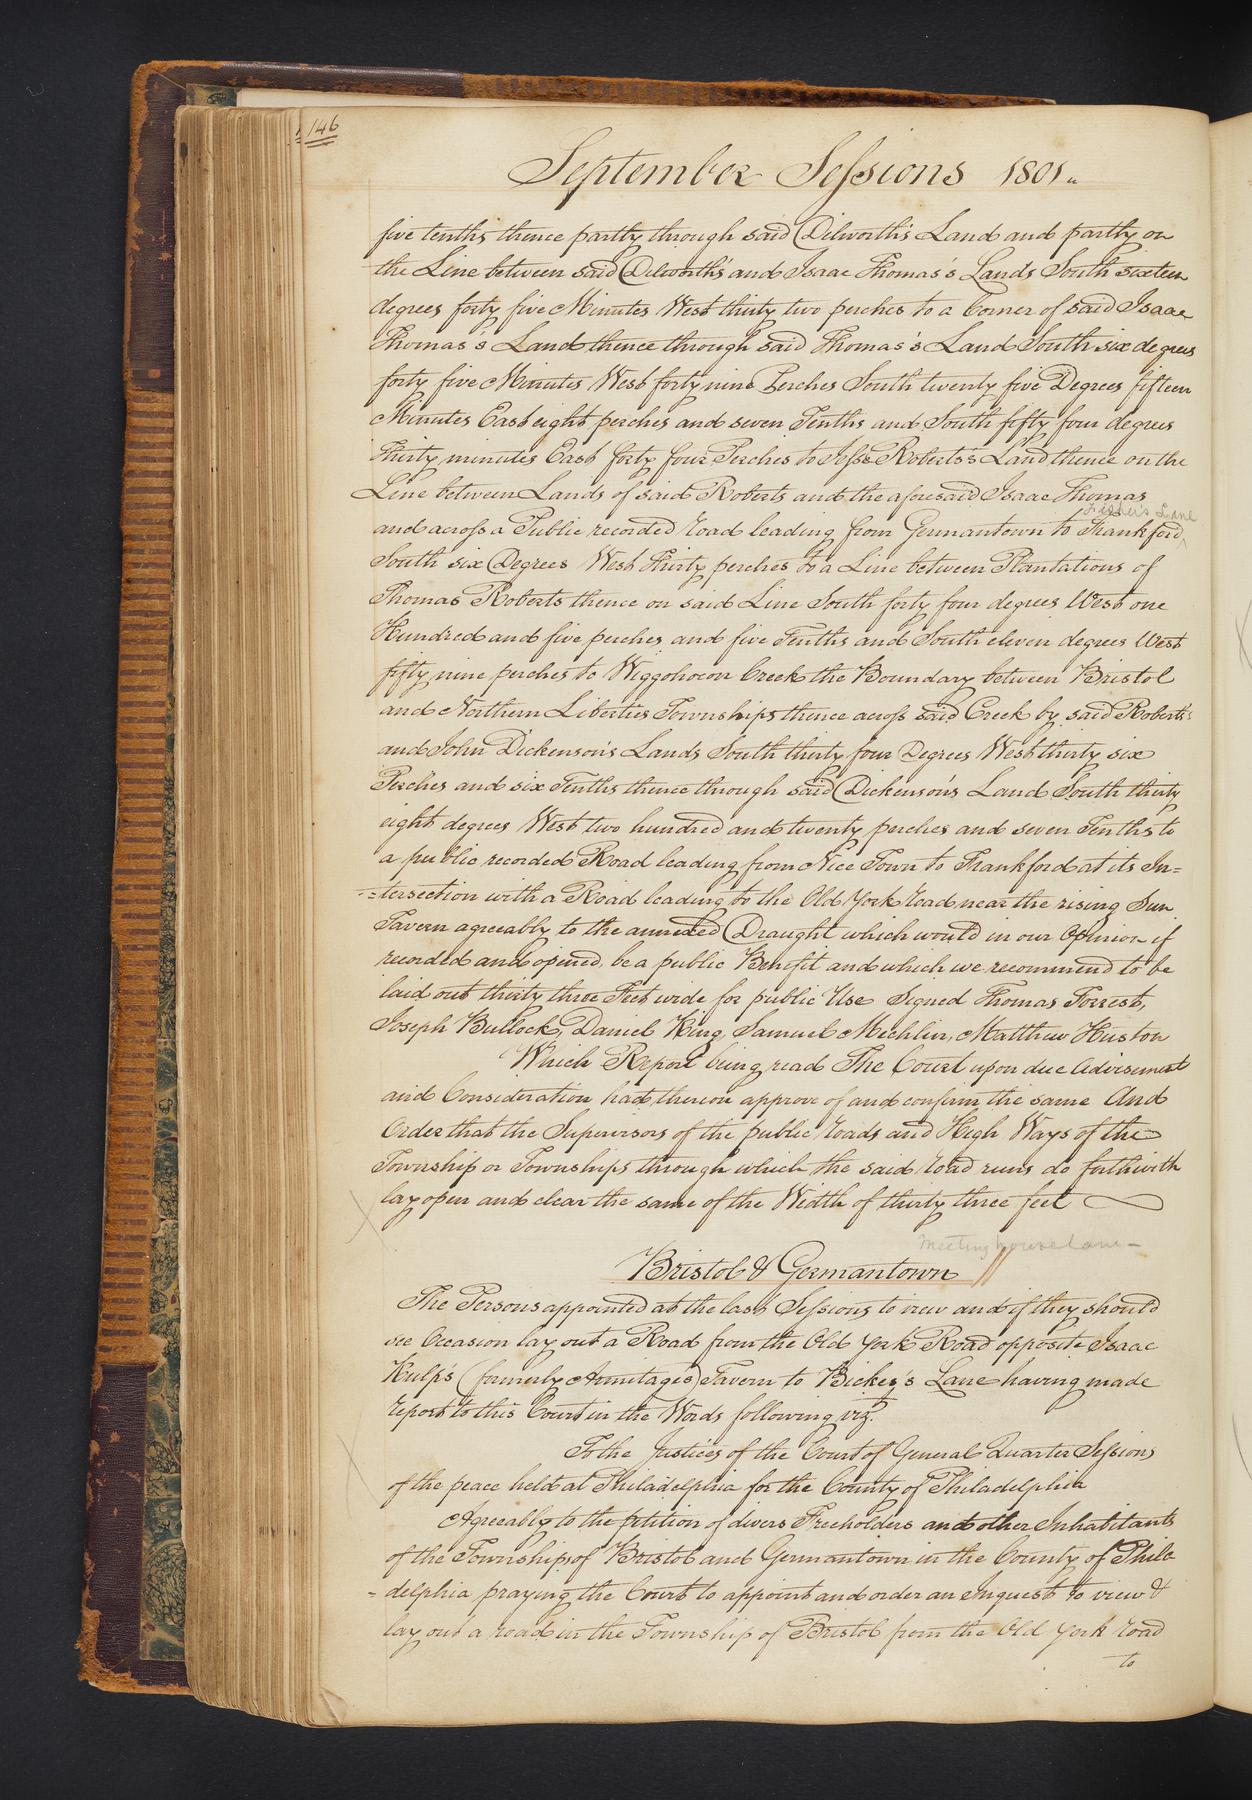 146
September Sessions 1801
five tenths thence partly through said Dilworth's Land and partly on
the Line between said Dilworth's and Isaac Thomas's Lands South sixteen
degrees forty five Minutes West thirty two perches to a Corner of said Isaac
Thomas's Land thence through said Thomas's Land South six degrees
forty five Minutes West forty nine Perches South twenty five Degrees fifteen
Minutes East eight perches and seven Tenths and South fifty four degrees
Thirty minutes East forty four Perches to Jesse Roberts's Land thence on the
Line between Lands of said Roberts and the aforesaid Isaac Thomas
Fisher's Lane
and across a Public recorded road leading from Germantown to Frankford
South six Degrees West Thirty perches to a Line between Plantations of
Thomas Roberts thence on said Line South forty four degrees West one
Hundred and five perches and five Tenths and South eleven degrees West
fifty nine perches to Wiggohocon Creek the Boundary between Bristol
and Northern Liberties Townships thence across said Creek by said Roberts's
and John Dickenson's Lands South thirty four Degrees West thirty six
Perches and six Tenths thence through said Dickenson's Land South thirty
eight degrees West two hundred and twenty perches and seven Tenths to
a public recorded Road leading from Nice Town to Frankford at its In=
=tersection with a Road leading to the Old York road near the rising Sun
Tavern agreeably to the annexed Draught which would in our Opinion if
recorded and opened, be a public Benefit and which we recommend to be
laid out thirty three Feet wide for public Use Signed Thomas Forrest,
Joseph Bullock, Daniel King, Samuel Mechlin, Matthew Huston
Which Report being read The Court upon due Advisement
and Consideration had thereon approve of and confirm the same And
Order that the Supervisors of the public roads and High Ways of the
Township or Townships through which the said road runs do forthwith
lay open and clear the same of the Width of thirty three feet
Meeting house lane -
Bristol & Germantown
The Persons appointed at the last Sessions to view and if they should
see Occasion lay out a Road from the Old York Road opposite Isaac
Kulp's (formerly Armitages) Tavern to Bickey's Lane having made
report to this Court in the Words following viz.
To the Justices of the Court of General Quarter Sessions
of the peace held at Philadelphia for the County of Philadelphia
Agreeably to the petition of divers Freeholders and other Inhabitants
of the Townships of Bristol and Germantown in the County of Phila
-delphia praying the Court to appoint and order an Inquest to view &
lay out a road in the Township of Bristol from the Old York road
to